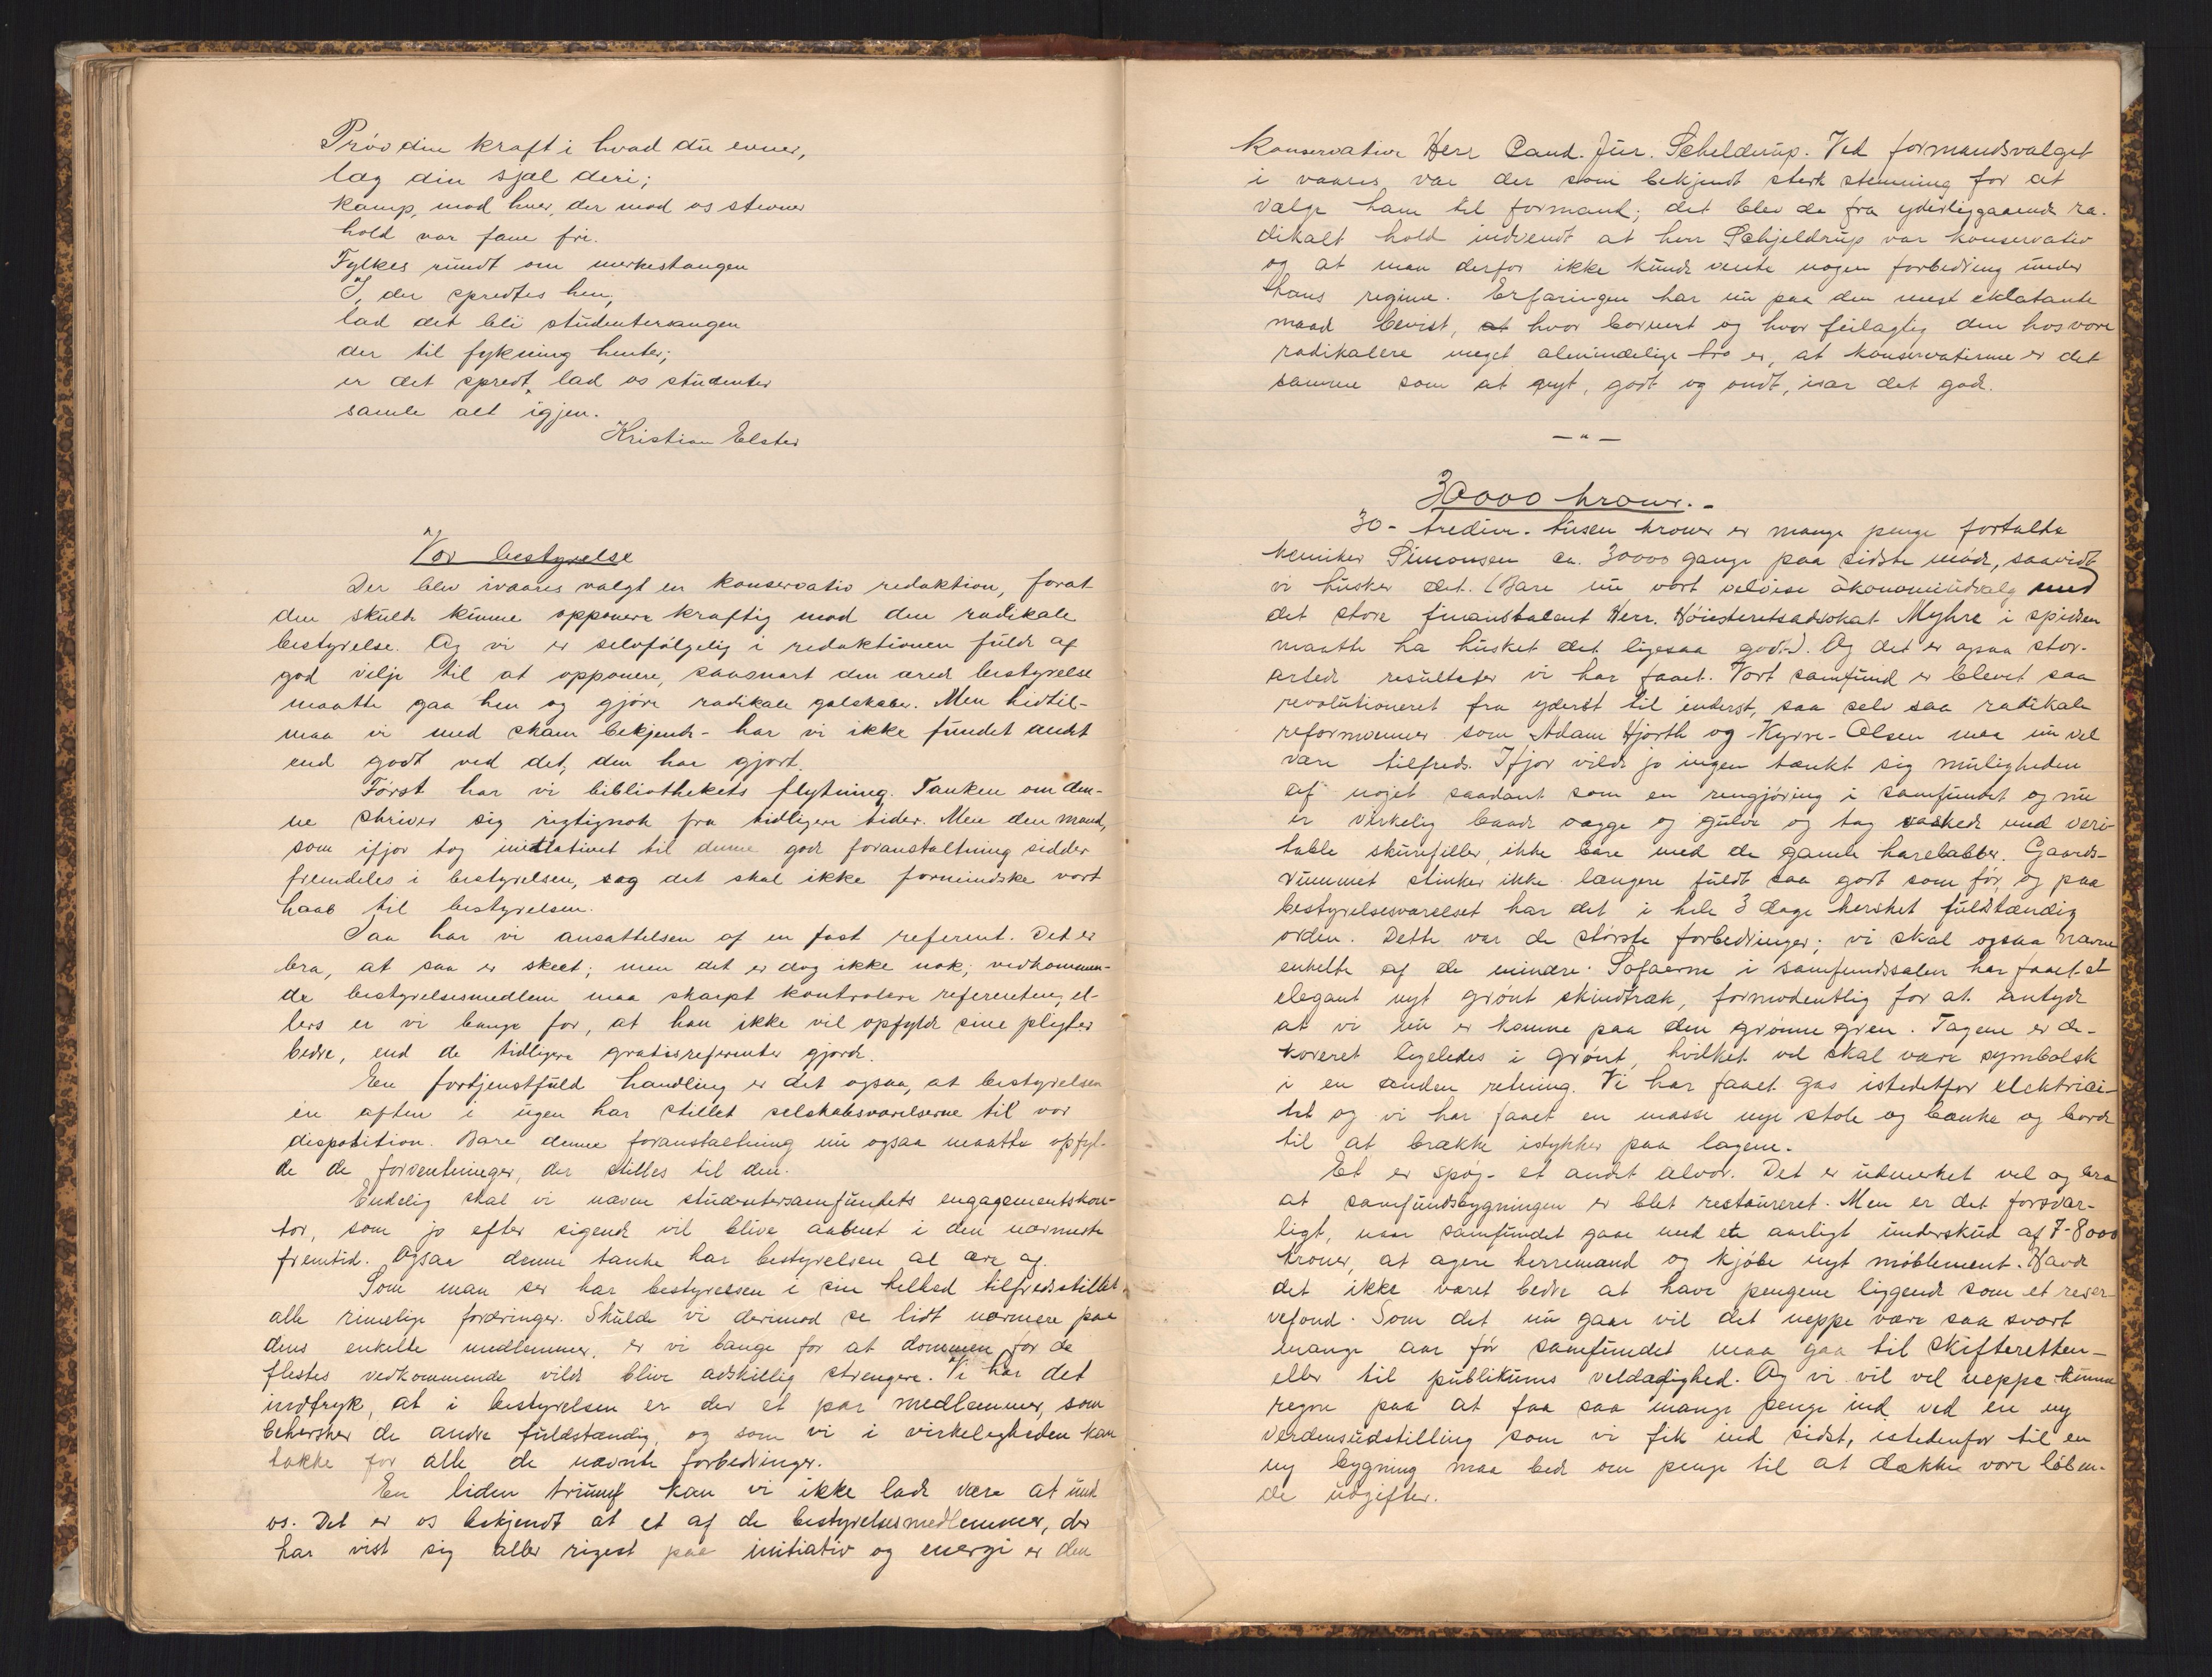 Prøv din kraft i hvad du evner,
læg din sjæl deri;
kamp, mod hver, der mod os stevner
hold vor fane fri.
Fylkes rundt om merkestangen
I, der spredtes hen,
lad det bli studentersangen
der til fylkning henter;
er det spredt, lad os studenter
samle alt igjen.
Kristian Elster
Vor bestyrelse
Der blev ivaares valgt en konservativ redaktion, forat
den skulde kunne opponere kraftig mod den radikale
bestyrelse. Og vi er selvfølgelig i redaktionen fulde af
god vilje til at opponere, saasnart den ærede bestyrelse
maatte gaa hen og gjøre radikale galskaber. Men hidtil-
maa vi med skam bekjende - har vi ikke fundet andet
end godt ved det, den har gjort.
Først har vi bibliothekets flytning. Tanken om den-
ne skriver sig rigtignok fra tidligere tider. Men den mand,
som ifjor tog initiativet til denne gode foranstaltning sidder
fremdeles i bestyrelsen, og det skal ikke formindske vort
haab til bestyrelsen.
Saa har vi ansættelsen af en fast referent. Det er
bra, at saa er skeet; men det er dog ikke nok; vedkommen-
de bestyrelsesmedlem maa skarpt kontrolere referenten, el-
lers er vi bange for, at han ikke vil opfylde sine pligter
bedre, end de tidligere gratisreferenter gjorde.
En fortjenstfuld handling er det ogsaa, at bestyrelsen
en aften i ugen har stillet selskabsværelserne til vor
disposition. Bare denne foranstaltning nu ogsaa maatte opfyl-
de de forventninger, der stilles til den.
Endelig skal vi nævne studentersamfundets engagementskon-
tor, som jo efter sigende vil blive aabnet i den nærmeste
fremtid. Ogsaa denne tanke har bestyrelsen al ære af.
Som man ser har bestyrelsen i sin helhed tilfredsstillet
alle rimelige fordringer. Skulde vi derimod se lidt nærmere paa
dens enkelte medlemmer, er vi bange for at dommen for de
flestes vedkommende vilde blive adskillig strengere. Vi har det
indtryk, at i bestyrelsen er der et par medlemmer, som
behersker de andre fuldstændig, og som vi i virkeligheden kan
takke for alle de nævnte forbedringer.
En liden triumf kan vi ikke lade være at unde
os. Det er os bekjendt at et af de bestyrelsesmedlemmer, der
har vist sig aller rigest paa initiativ og energi er den
konservative Herr Cand. Jur. Schelderup. Ved formandsvalget
i vaares var der som bekjendt sterk stemning for at
vælge ham til formand; det blev da fra yderliggaaende ra-
dikalt hold indvendt at herr Schjeldrup var konservativ
og at man derfor ikke kunde vente nogen forbedring under
hans regime. Erfaringen har nu paa den mest eklatante
maade bevist, at hvor bornert og hvor feilagtig den hos vore
radikalere meget almindelige tro er, at konservatisme er det
samme som at nyt, godt og ondt, især det gode.
— " —
30000 kroner. -
30 - tredive - tusen kroner er mange penge fortalte
kemiker Simonsen ca. 30000 gange paa sidste møde, saavidt
vi husker det. (Bare nu vort veløise økonomiudvalg med
det store finanstalent Herr. Høiesteretsadvokat Myhre i spidsen
maatte ha husket det ligesaa godt.). Og det er ogsaa stor-
artede resultater vi har faaet. Vort samfund er blevet saa
revolutioneret fra yderst til inderst, saa selv saa radikale
reformvenner som Adam Hjorth og Kyrre-Olsen maa nu vel
være tilfreds. Ifjor vilde jo ingen tænkt sig muligheden
af noget saadant som en rengjøring i samfundet og nu
er virkelig baade vægge og gulve og tag vasket med veri-
table skurefiller, ikke bare med de gamle harelabber. Gaards-
rummet stinker ikke længere fuldt saa godt som før, og paa
bestyrelsesværelset har det i hele 3 dage hersket fuldstændig
orden. Dette var de største forbedringer; vi skal ogsaa nævne
enkelte af de mindre. Sofaerne i samfundssalen har faaet et
elegant nyt grønt skindtræk, formodentlig for at antyde
at vi nu er komne paa den grønne gren. Tagene er de-
koreret ligeledes i grønt, hvilket vel skal være symbolsk
i en anden retning. Vi har faaet gas istedetfor elektrici-
tet og vi har faaet en masse nye stole og bænke og borde
til at brække istykker paa lagene.
Et er spøg - et andet alvor. Det er udmerket vel og bra
at samfundsbygningen er blet restaureret. Men er det forsvar-
ligt, naar samfundet gaar med et aarligt underskud af 7-8000
kroner, at agere herremand og kjøbe nyt møblement. Havde
det ikke været bedre at have pengene liggende som et reser-
vefond. Som det nu gaar vil det neppe være saa svært
mange aar før samfundet maa gaa til skifteretten -
eller til publikums veldædighed. Og vi vil vel neppe kunne
regne paa at faa saa mange penge ind ved en ny
verdensudstilling som vi fik ind sidst, istedenfor til en
ny bygning maa bede om penge til at dække vore løben-
de udgifter.